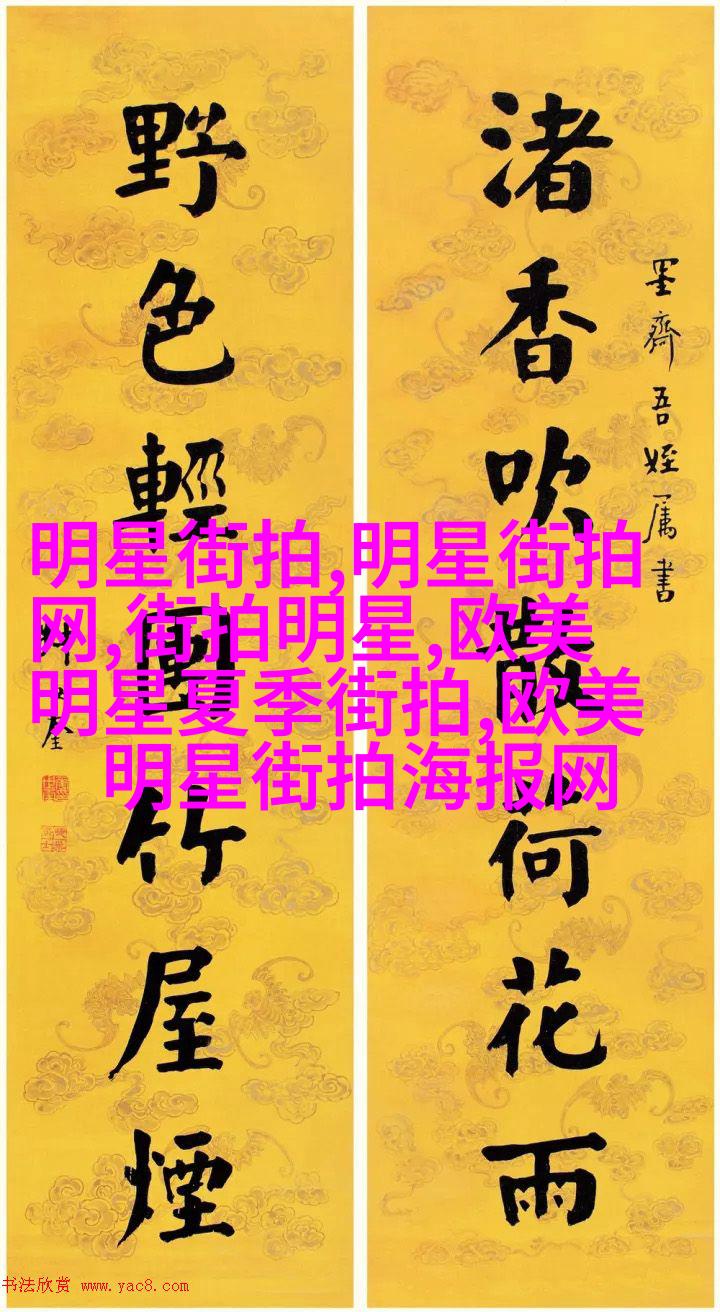 渚香吹散荷花雨
墨齊吾姪属書
野色輕竹屋煙
明星街拍,明星街拍
网,街拍明星,欧美
明星夏季街拍,欧美
明星街拍海报网
书法欣赏 www.yac8.com